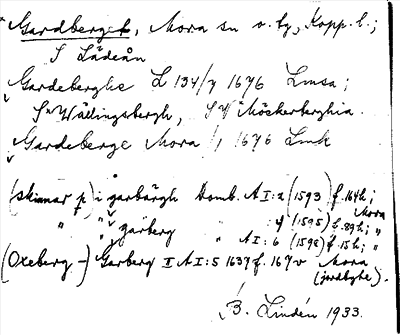 Gardberget, Mora sn o. tg, Kopp. l.;
S Lädeån
Gardeberghe L 134/7 1676 Lmsa;
S Wällingsbergh, S W Möckerberghia.
Gardeberge Mora 1/1 1676 Lmk
(skinnar p) i garbärgh Domb. A I: 2 (1593) f. 164 h; Mora
" " garberg " " 4 (1595) f. 89 h; "
A I: 6 (1598) f. 15 h; "
(Oxeberg -) Garberg II A I: 5 1637 f. 167 v Mora
(jordbyte).
B. Lindén 1933.